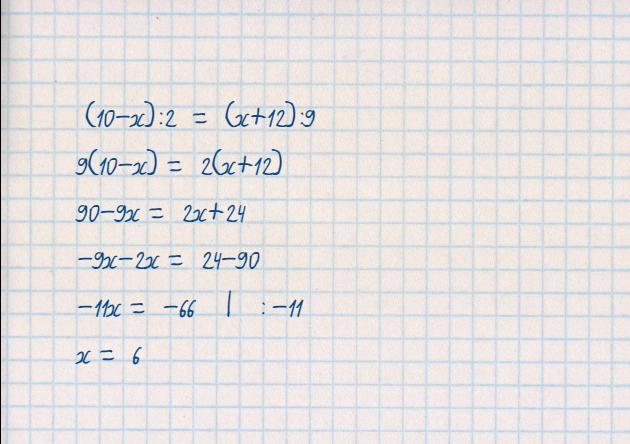 (10-x):2 = (x+12):9
9(10-x) = 2(x+12)
90-9x = 2x+24
-9x-2x = 24-90
-11x = -66 | :-11
x = 6